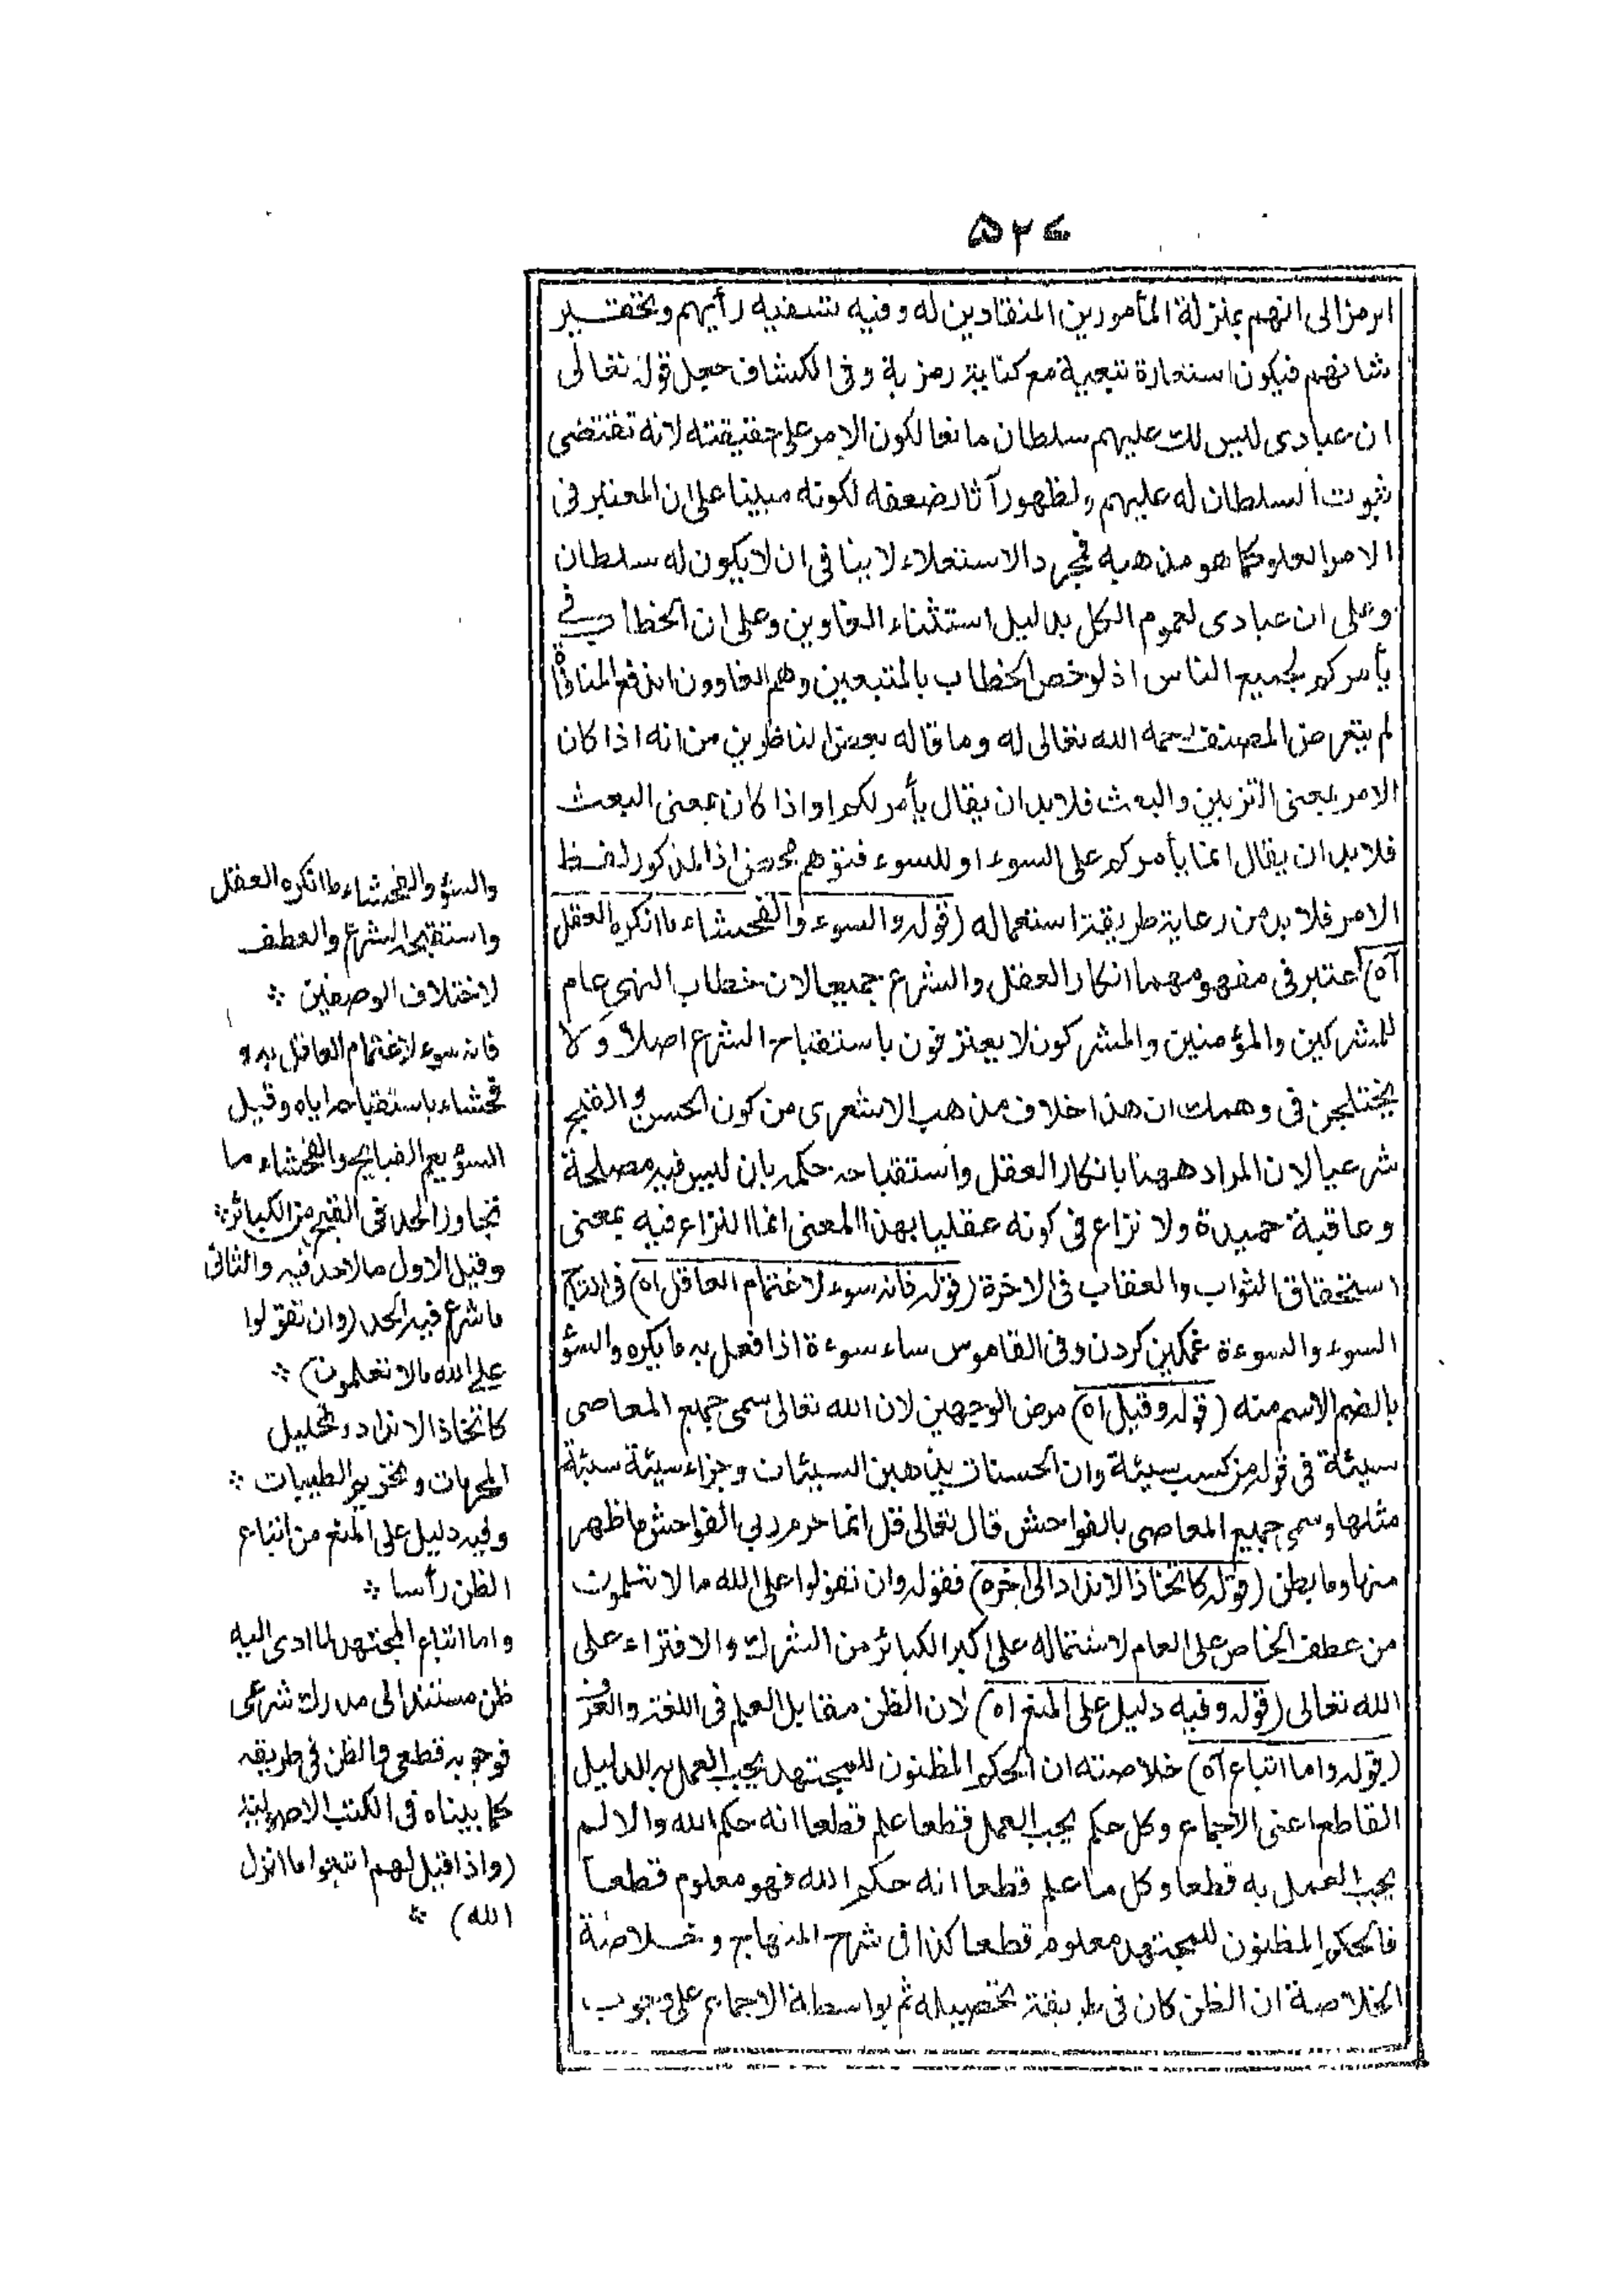 ۵۲۷
ا برمزا الى انهم بمنزلة المأمورين المنقادين له وفيه تسفيه رأيهم وتحقير
شانهم فيكون استعارة تبعية مع كناية رمزية وفي الكشاف جعل قوله تعالى
ان عبادى ليس لك عليهم سلطان مانعا لكون الامر على حقيقته لانه تقتضى
ثبوت السلطان له عليهم ولظهور آثار ضعفه لكونه مبينا على ان المعتبر فى
الامر العلو كما هو مذهبه فمجرد الاستعلاء لا ينافى ان لا يكون له سلطان
وعلى ان عبادى لعموم الكل بدليل استثناء الغاوين وعلى ان الخطاب فى
يأمركم لجميع الناس اذ لو خص الخطاب بالمتبعين وهم الغاوون اندفع المنافاة
لم يتعرض المصنف رحمه الله تعالى له وما قاله بعض الناظرين من انه اذا كان
الامر بمعنى التزيين والبعث فلابد ان يقال يأمر لكم او اذا كان بمعنى البعث
فلابد ان يقال انما يأمركم على السوء او للسوء فتوهم محض اذ المذكور لفظ
الامر فلا بد من رعاية طريقة استعماله (قوله والسوء والفحشاء ما انكره العقل
آه) اعتبر فى مفهومهما انكار العقل والشرع جميعا لان خطاب النهى عام
للمشركين والمؤمنين والمشركون لا يعترفون باستقباح الشرع اصلا و لا
يختلجن فى وهمك ان هذا خلاف مذهب الاشعرى من كون الحسن والقبح
شرعيا لان المراد ههنا بانكار العقل واستقباحه حكمه بان ليس فيه مصلحة
وعاقبة حميدة ولا نزاع فى كونه عقليا بهذا المعنى انما النزاع فيه بمعنى
استحقاق الثواب والعقاب فى الاخرة (قوله فانه سوء لاغتمام العاقل اه) فى التاج
السوء والسوءة غمكين كردن وفى القاموس ساء سوءة اذا فعل به ما يكره والسؤ
بالضم الاسم منه (قوله وقيل اه) مرض الوجهين لان الله تعالى سمى جميع المعاصى
سيئة فى قوله من كسب سيئة وان الحسنات يذهبن السيئات وجزاء سيئة سيئة
مثلها وسمى جميع المعاصى بالفواحش قال تعالى قل انما حرم ربى الفواحش ما ظهر
منها وما بطن (قوله كاتخاذ الانداد الى اخره) فقوله وان تقولوا على الله ما لا تعلمون
من عطف الخاص على العام لاشتماله على اكبر الكبائر من الشرك والافتراء على
الله تعالى (قوله وفيه دليل على المنع اه) لان الظن مقابل العلم فى اللغة والعرف
(قوله واما اتباع آه) خلاصته ان الحكم المظنون للمجتهد يجب العمل به للدليل
القاطع اعنى الاجماع وكل حكم يجب العمل قطعا علم قطعا انه حكم الله والا لم
يجب العمل به قطعا وكل ما علم قطعا انه حكم الله فهو معلوم قطعا
فالحكم المظنون للمجتهد معلوم قطعا كذا فى شرح المنهاج وخلاصة
الخلاصة ان الظن كان فى طريقة تحصيله ثم بواسطة الاجماع على وجوب
والسؤ والفحشاء ما انكره العقل
واستقبحه الشرع والعطف
لاختلاف الوصفين ∴
فانه سوء لاغتمام العاقل به و
فحشاء باستقباحه اياه وقيل
السؤ يعم القبايح والفحشاء ما
تجاوز الحد فى القبح من الكبائر ∴
وقيل الاول ما لا حد فيه والثانى
ما شرع فيه الحد (وان تقولوا
على الله ما لا تعلمون) ∴
كاتخاذ الانداد وتحليل
المحرمات وتحريم الطيبات ∴
وفيه دليل على المنع من اتباع
الظن رأسا ∴
واما اتباع المجتهد لما ادى اليه
ظن مستندا الى مدرك شرعى
فوجوبه قطعى والظن فى طريقه
كما بيناه فى الكتب الاصولية
(واذا قيل لهم اتبعوا ما انزل
الله) ∴